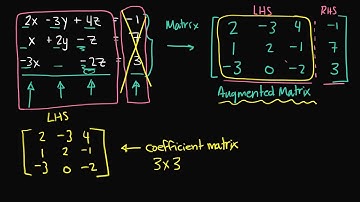 2x -3y + 4z = -1
x + 2y - z = 7
-3x - 2z = 3
LHS
Matrix
LHS RHS
2 -3 4 -1
1 2 -1 7
-3 0 -2 3
Augmented Matrix
2 -3 4
1 2 -1
-3 0 -2
coefficient matrix
3x3